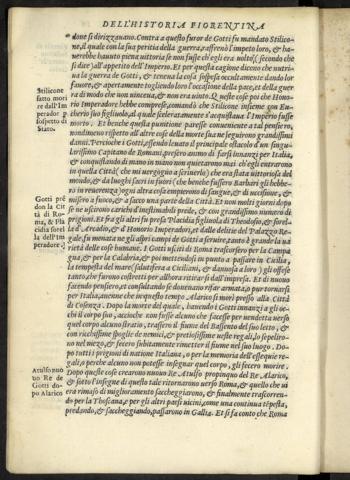 DELL'HISTORIA FIORENTINA
done si dirizzauano. Contra a questo furor de Gotti fu mandato Stilico-
ne, il quale con la sua peritia della guerra, raffrenò l'impeto loro, & ha-
uerebbe hauuto piena uittoria se non fusse ch'egli era uolto (secondo che
si dice) all'appetito dell'Imperio. Et per questa cagione diceno che nutri-
ua la guerra de Gotti, & teneua la cosa sospesa occultamente dando lor
fauore, & apertamente togliendo loro l'occasione della pace, et della guer
ra di modo che non uinceua, & non era uinto. Queste cose poi che Hono-
Stilicone
fatto mori
re dall'Im
perador p
sospetto di
Stato.
rio Imperadore hebbe compreso, comandò che Stilicone insieme con Eu-
cherio suo figliuolo, al quale sceleratamente s'acquistaua l'Imperio fusse
morto. Et benche questa punitione paresse conueniente a tal pensiero,
nondimeno rispetto all'altre cose della morte sua ne seguirono grauissimi
danni. Percioche i Gotti, essendo leuato il principale ostacolo d'un singu-
larissimo Capitano de Romani, presero animo di farsi innanzi per Italia,
& conquistando di mano in mano non quietarono mai ch'egli entrarono
in quella Città (che mi uergogno a scriuerlo) che era stata uittoriosa del
mondo, & da luoghi sacri in fuori (che benche fussero Barbari gli hebbe-
ro in reuerenza) ogni altra cosa empierono di sangue, & di uccisione, &
misero a fuoco, & a sacco una parte della Città. Et non molti giorni dopo
Gotti pré
don la Cit
tà di Ro-
ma, & Pla
cidia sorel
la dell'Im
peradore.
se ne uscirono carichi d'inestimabil preda, & con grandissimo numero di
prigioni. Et fra gli altri fu presa Placidia figliuola di Theodosio, & sorel-
la d'Arcadio, & d'Honorio Imperadori, et dalle delitie del Palazzo Re-
gale, fu menata ne gli aspri campi de Gotti a seruire, tanto è grande la ua
rietà delle cose humane. I Gotti usciti di Roma trascorsero per la Campa
gna, & per la Calabria, & poi mettendosi in punto a passare in Cicilia,
la tempesta del mare (salutifera a Ciciliani, & dannosa a loro) gli offese
tanto, che furono costretti per allhora ritirarsi dall'impresa. Et di nuouo
facendo pensiero, et consultando se doueuano rifar armata, o pur tornarsi
per Italia, auuenne che in questo tempo Alarico si morì presso alla Città
di Cosenza. Dopo la morte del quale, hauendo i Gotti innanzi a gli oc-
chi il corpo suo, accioche non fusse alcuno che facesse per uendetta uerso
quel corpo alcuno stratio, trassero il fiume del Bassento del suo letto, &
con ricchissime spoglie de nemici, & pretiosissime ueste regali, lo sepelliro-
no nel mezo, & fecero subitamente rimettere il fiume nel suo luogo. Do-
po tutti i prigioni di natione Italiana, o per la memoria dell'essequie re-
gali, o perche alcuno non potesse insegnar quel corpo, gli fecero morire.
Atulfo nuo
uo Re de
Gotti do-
po Alarico
Dopo queste cose crearono nuouo Re Atulfo propinquo del Re Alarico,
& sotto l'insegne di questo tale ritornarono uerso Roma, & quello che ui
era rimaso di miglioramento saccheggiarono, & finalmente trascorren-
do per la Thoscana, & per gli altri paesi uicini, come una continua tépesta,
predando, & saccheggiando, passarono in Gallia. Et si fa conto che Roma